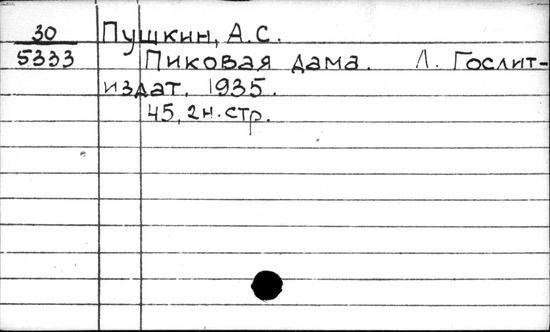 30 Пушкин, А.С.
5333 Пиковая дама. Л. Гослит-
издат, 1935.
45, 2н.стр.